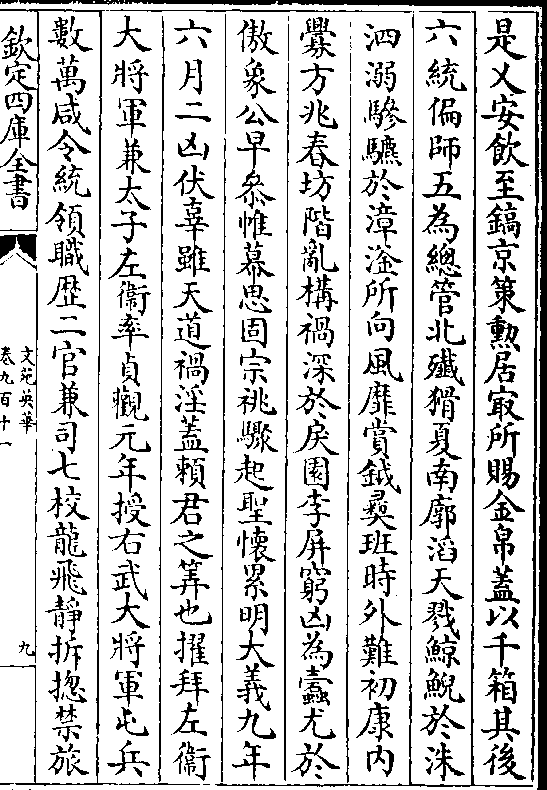 是乂安飲至鎬京策勲居㝡所賜金帛蓋以千箱其後
六統偏師五為總管北殱猾夏南廓滔天戮鯨鯢於洙
泗溺驂驪於漳滏所向風靡賞鉞彛班時外難初康内
釁方兆春坊階亂構禍深於戾園季屏窮凶為蠧尤於
傲象公早叅帷幕思固宗祧驟起聖懷累明大義九年
六月二凶伏辜雖天道禍淫蓋頼君之筭也擢拜左衞
大將軍兼太子左衞率貞觀元年授右武大將軍屯兵
數萬咸令統領職歴二官兼司七校龍飛靜㭊揔禁旅
欽定四庫全書
文苑英華
卷九百十一
九